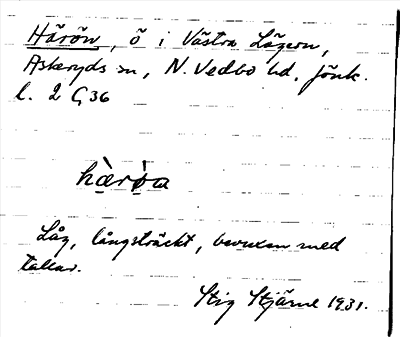 Härön, ö i Västra Lägern,
Askeryds sn, N. Vedbo hd. Jönk.
l. 2 G 36
hàrø̀a
Låg, långsträckt, bevuxen med
tallar.
Stig Stjärne 1931.